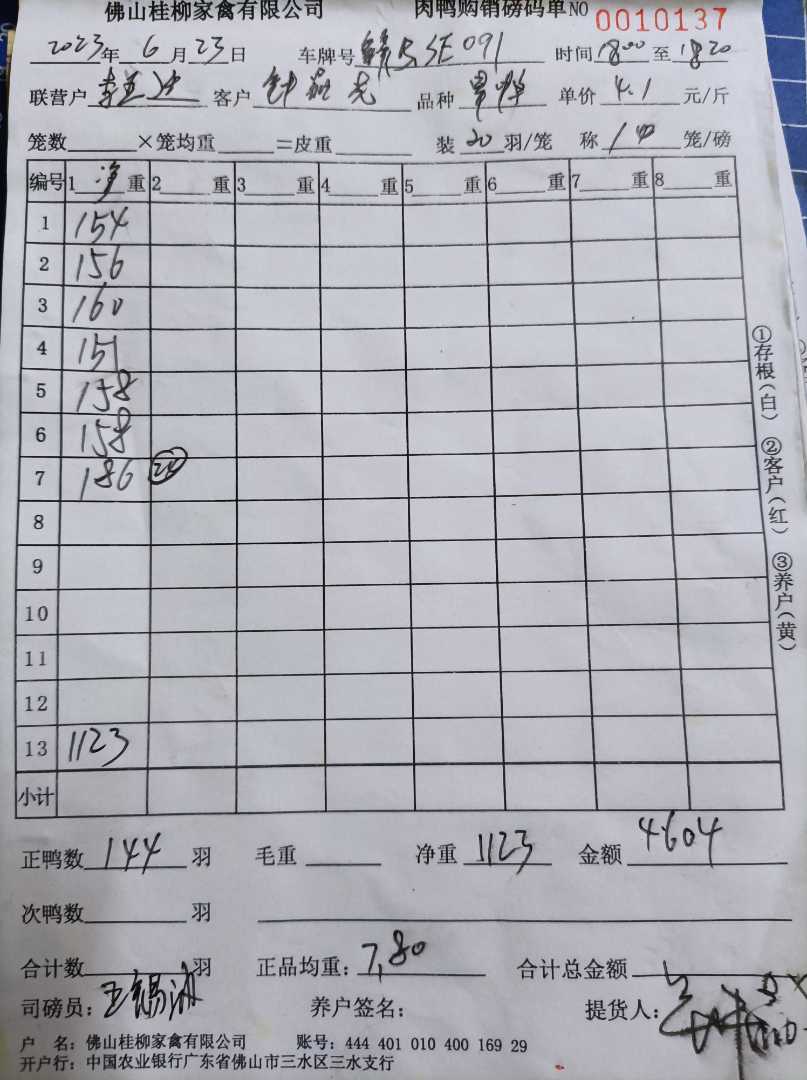 佛山桂柳家禽有限公司 肉鸭购销磅码单 NO 0010137
2023年 6月23日 车牌号 时间 1800 至 1820
联营户 客户 品种 单价 4.1 元/斤
笼数 ×笼均重 =皮重 装 20 羽/笼 称 笼/磅
编号 1 净 重 2 重 3 重 4 重 5 重 6 重 7 重 8 重
1 154
2 156
3 160
4 151
5 158
6 158
7 186
8
9
10
11
12
13 1123
小计
①存根(白) ②客户(红) ③养户(黄)
正鸭数 144 羽 毛重 净重 1123 金额 4604
次鸭数 羽
合计数 羽 正品均重: 7.80 合计总金额
司磅员: 养户签名: 提货人:
户 名: 佛山桂柳家禽有限公司 账号: 444 401 010 400 169 29
开户行: 中国农业银行广东省佛山市三水区三水支行